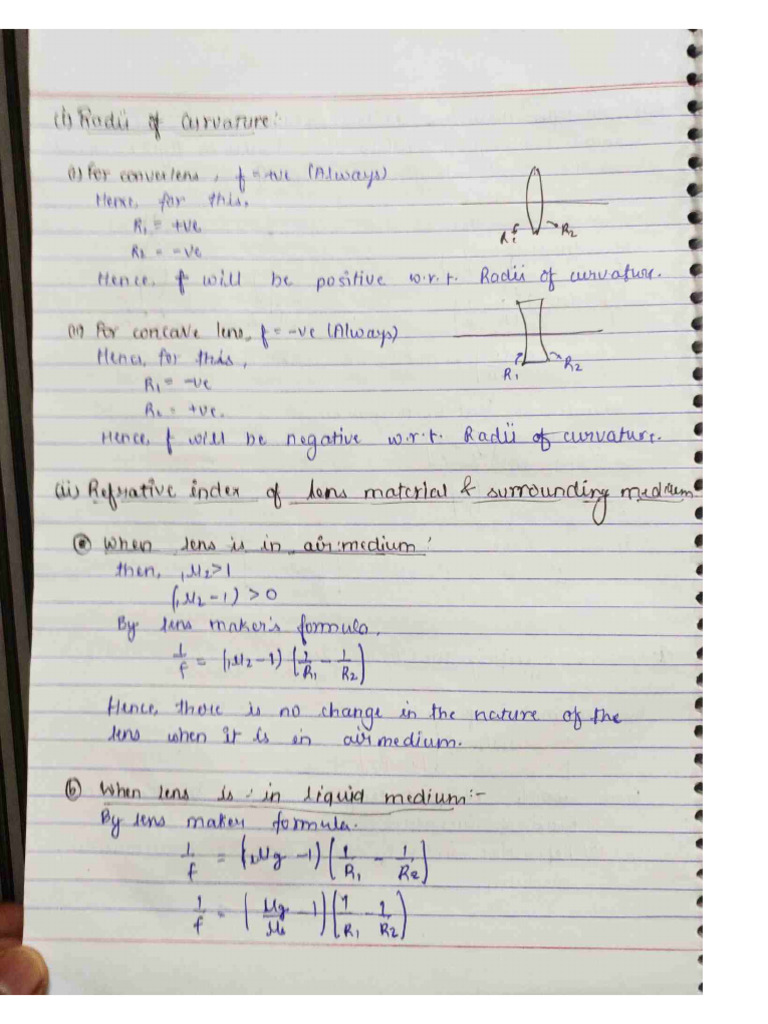 (i) Radii of curvature:-
(i) For convex lens, f = +ve (Always)
Hence, for this,
R₁ = +ve
R₂ = -ve
R₁ R₂
Hence, f will be positive w.r.t. Radii of curvature.
(ii) For concave lens, f = -ve (Always)
Hence, for this,
R₁ R₂
R₁ = -ve
R₂ = +ve.
Hence, f will be negative w.r.t. Radii of curvature.
(iii) Refrative index of lens material & surrounding medium
(a) When lens is in air medium:
then, ₁μ₂>1
(₁μ₂-1) > 0
By lens maker's formula,
1/f = (₁μ₂-1) (1/R₁ - 1/R₂)
Hence, there is no change in the nature of the
lens when it is in air medium.
(b) When lens is in liquid medium:-
By lens maker formula.
1/f = (μg -1) (1/R₁ - 1/R₂)
1/f = (μg/μ -1) (1/R₁ - 1/R₂)